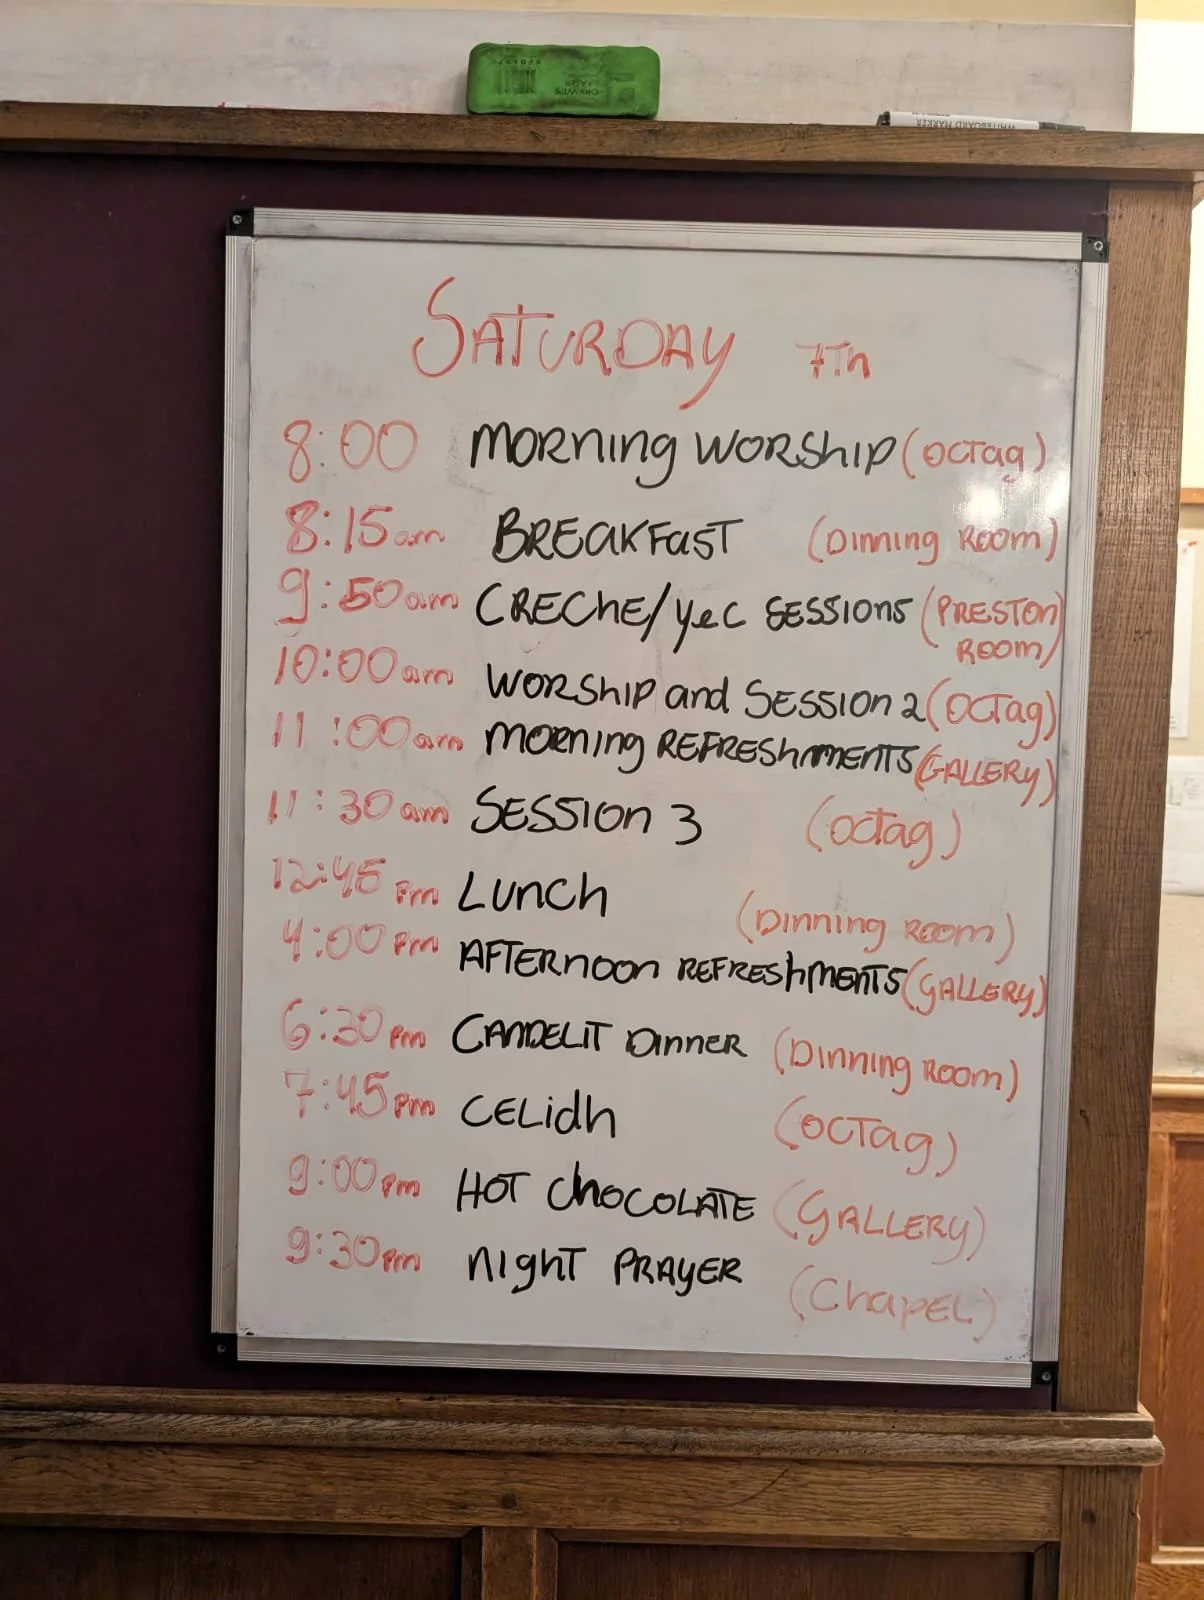 WHITEBOARD MARKER
SATURDAY 7Th
8:00 MORNING WORSHIP (OCTag)
8:15am BREAKFAST (Dinning ROOM)
9:50am CRECHE/yec SESSIONS (PRESTON
ROOM)
10:00am WORSHIP and SESSION 2 (OCTag)
11:00am MORNING REFRESHMENTS (GALLERY)
11:30am SESSION 3 (OCTag)
12:45 Pm LUNCH (Dinning ROOM)
4:00 Pm AFTERNOON REFRESHMENTS (GALLERY)
6:30 Pm CANDELIT DINNER (Dinning ROOM)
7:45 Pm CELidh (OCTag)
9:00 Pm HOT CHOCOLATE (GALLERY)
9:30 Pm NIGHT PRAYER (Chapel)